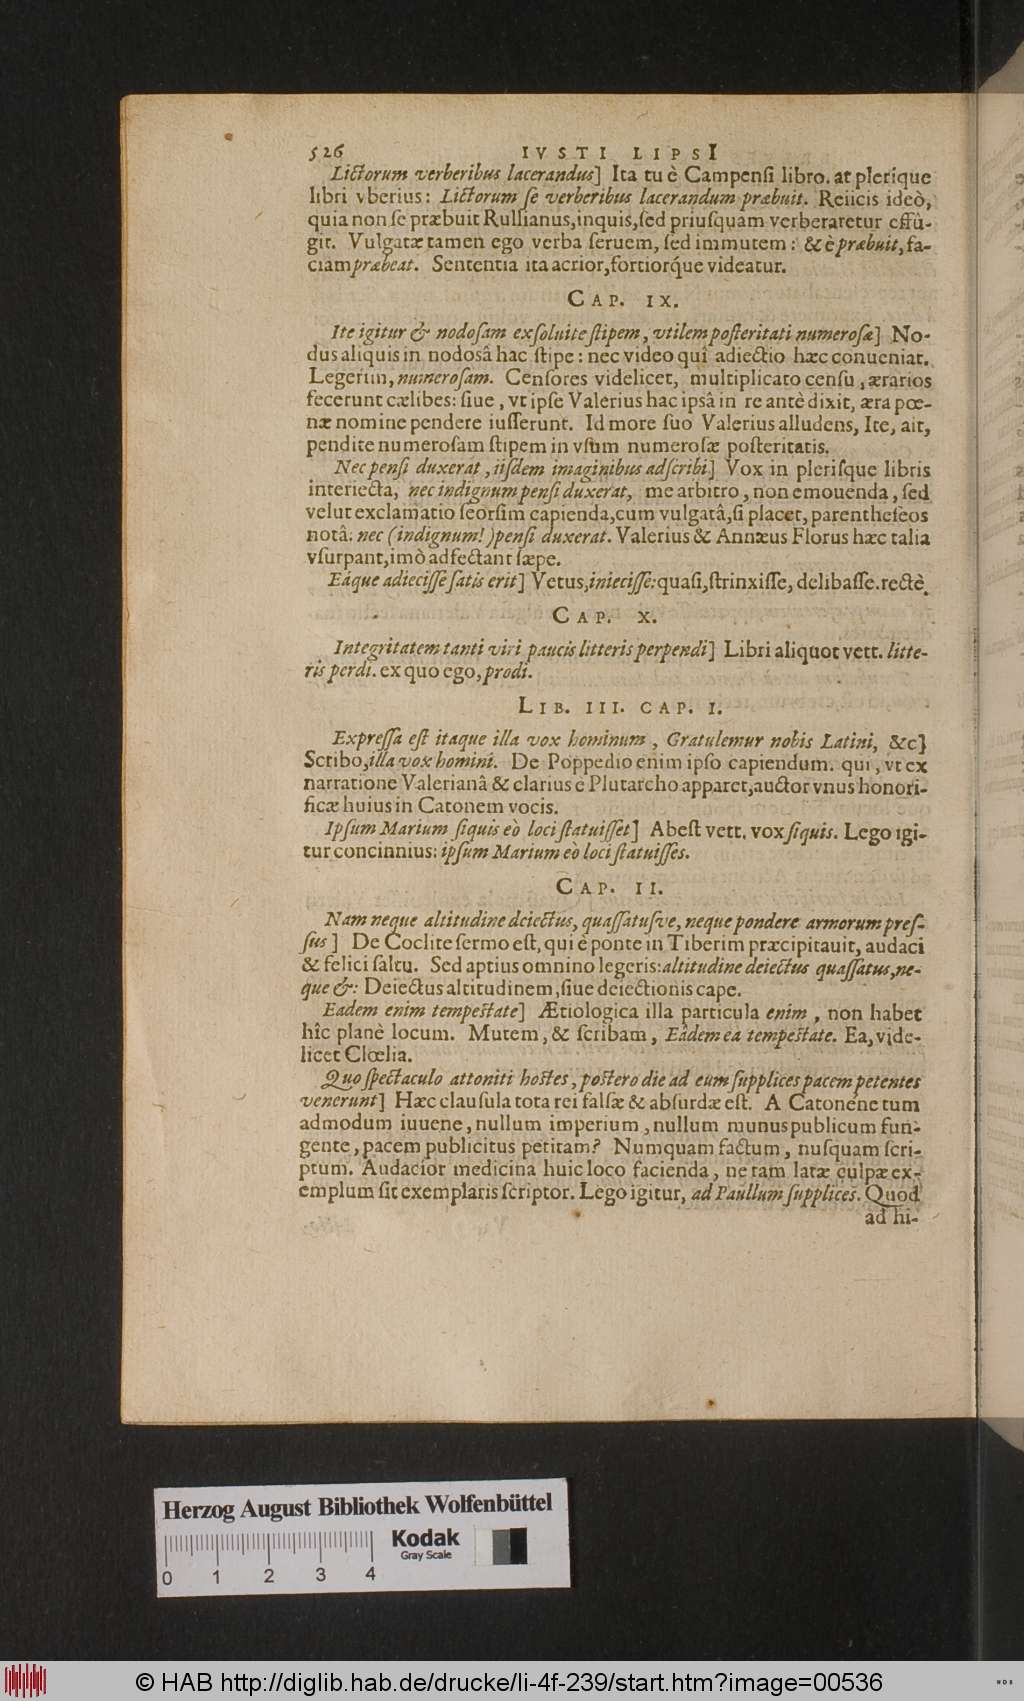 526 IVSTI LIPSI
Lictorum verberibus lacerandus] Ita tu è Campensi libro. at plerique
libri vberius: Lictorum se verberibus lacerandum præbuit. Reiicis ideò,
quia non se præbuit Rullianus, inquis, sed priusquam verberaretur effû-
git. Vulgatæ tamen ego verba seruem, sed immutem: & è præbuit, fa-
ciam præbeat. Sententia ita acrior, fortiorq́ue videatur.
CAP. IX.
Ite igitur & nodosam exsoluite stipem, vtilem posteritati numerosæ] No-
dus aliquis in nodosâ hac stipe: nec video quî adiectio hæc conueniat.
Legerim, numerosam. Censores videlicet, multiplicato censu, ærarios
fecerunt cælibes: siue, vt ipse Valerius hac ipsâ in re antè dixit, æra pœ-
næ nomine pendere iusserunt. Id more suo Valerius alludens, Ite, ait,
pendite numerosam stipem in vsum numerosæ posteritatis.
Nec pensi duxerat, iisdem imaginibus adscribi] Vox in plerisque libris
interiecta, nec indignum pensi duxerat, me arbitro, non emouenda, sed
velut exclamatio seorsim capienda, cum vulgatâ, si placet, parentheseos
notâ: nec (indignum!) pensi duxerat. Valerius & Annæus Florus hæc talia
vsurpant, imò adfectant sæpe.
Eáque adiecisse satis erit] Vetus, iniecisse: quasi, strinxisse, delibasse. rectè.
CAP. X.
Integritatem tanti viri paucis litteris perpendi] Libri aliquot vett. litte-
ris perdi. ex quo ego, prodi.
LIB. III. CAP. I.
Expressa est itaque illa vox hominum, Gratulemur nobis Latini, &c]
Scribo, illa vox homini. De Poppedio enim ipso capiendum. qui, vt ex
narratione Valerianâ & clarius è Plutarcho apparet, auctor vnus honori-
ficæ huius in Catonem vocis.
Ipsum Marium siquis eò loci statuisset] Abest vett. vox siquis. Lego igi-
tur concinnius: ipsum Marium eò loci statuisses.
CAP. II.
Nam neque altitudine deiectus, quassatusve, neque pondere armorum pres-
sus] De Coclite sermo est, qui è ponte in Tiberim præcipitauit, audaci
& felici saltu. Sed aptius omnino legeris: altitudine deiectus quassatus, ne-
que &: Deiectus altitudinem, siue deiectionis cape.
Eadem enim tempestate] Ætiologica illa particula enim, non habet
hîc planè locum. Mutem, & scribam, Eâdem ea tempestate. Ea, vide-
licet Clœlia.
Quo spectaculo attoniti hostes, postero die ad eum supplices pacem petentes
venerunt] Hæc clausula tota rei falsæ & absurdæ est. A Catonéne tum
admodum iuuene, nullum imperium, nullum munus publicum fun-
gente, pacem publicitus petitam? Numquam factum, nusquam scri-
ptum. Audacior medicina huic loco facienda, ne tam latæ culpæ ex-
emplum sit exemplaris scriptor. Lego igitur, ad Paullum supplices. Quod
ad hi-
Herzog August Bibliothek Wolfenbüttel
Kodak
Gray Scale
0 1 2 3 4
© HAB http://diglib.hab.de/drucke/li-4f-239/start.htm?image=00536